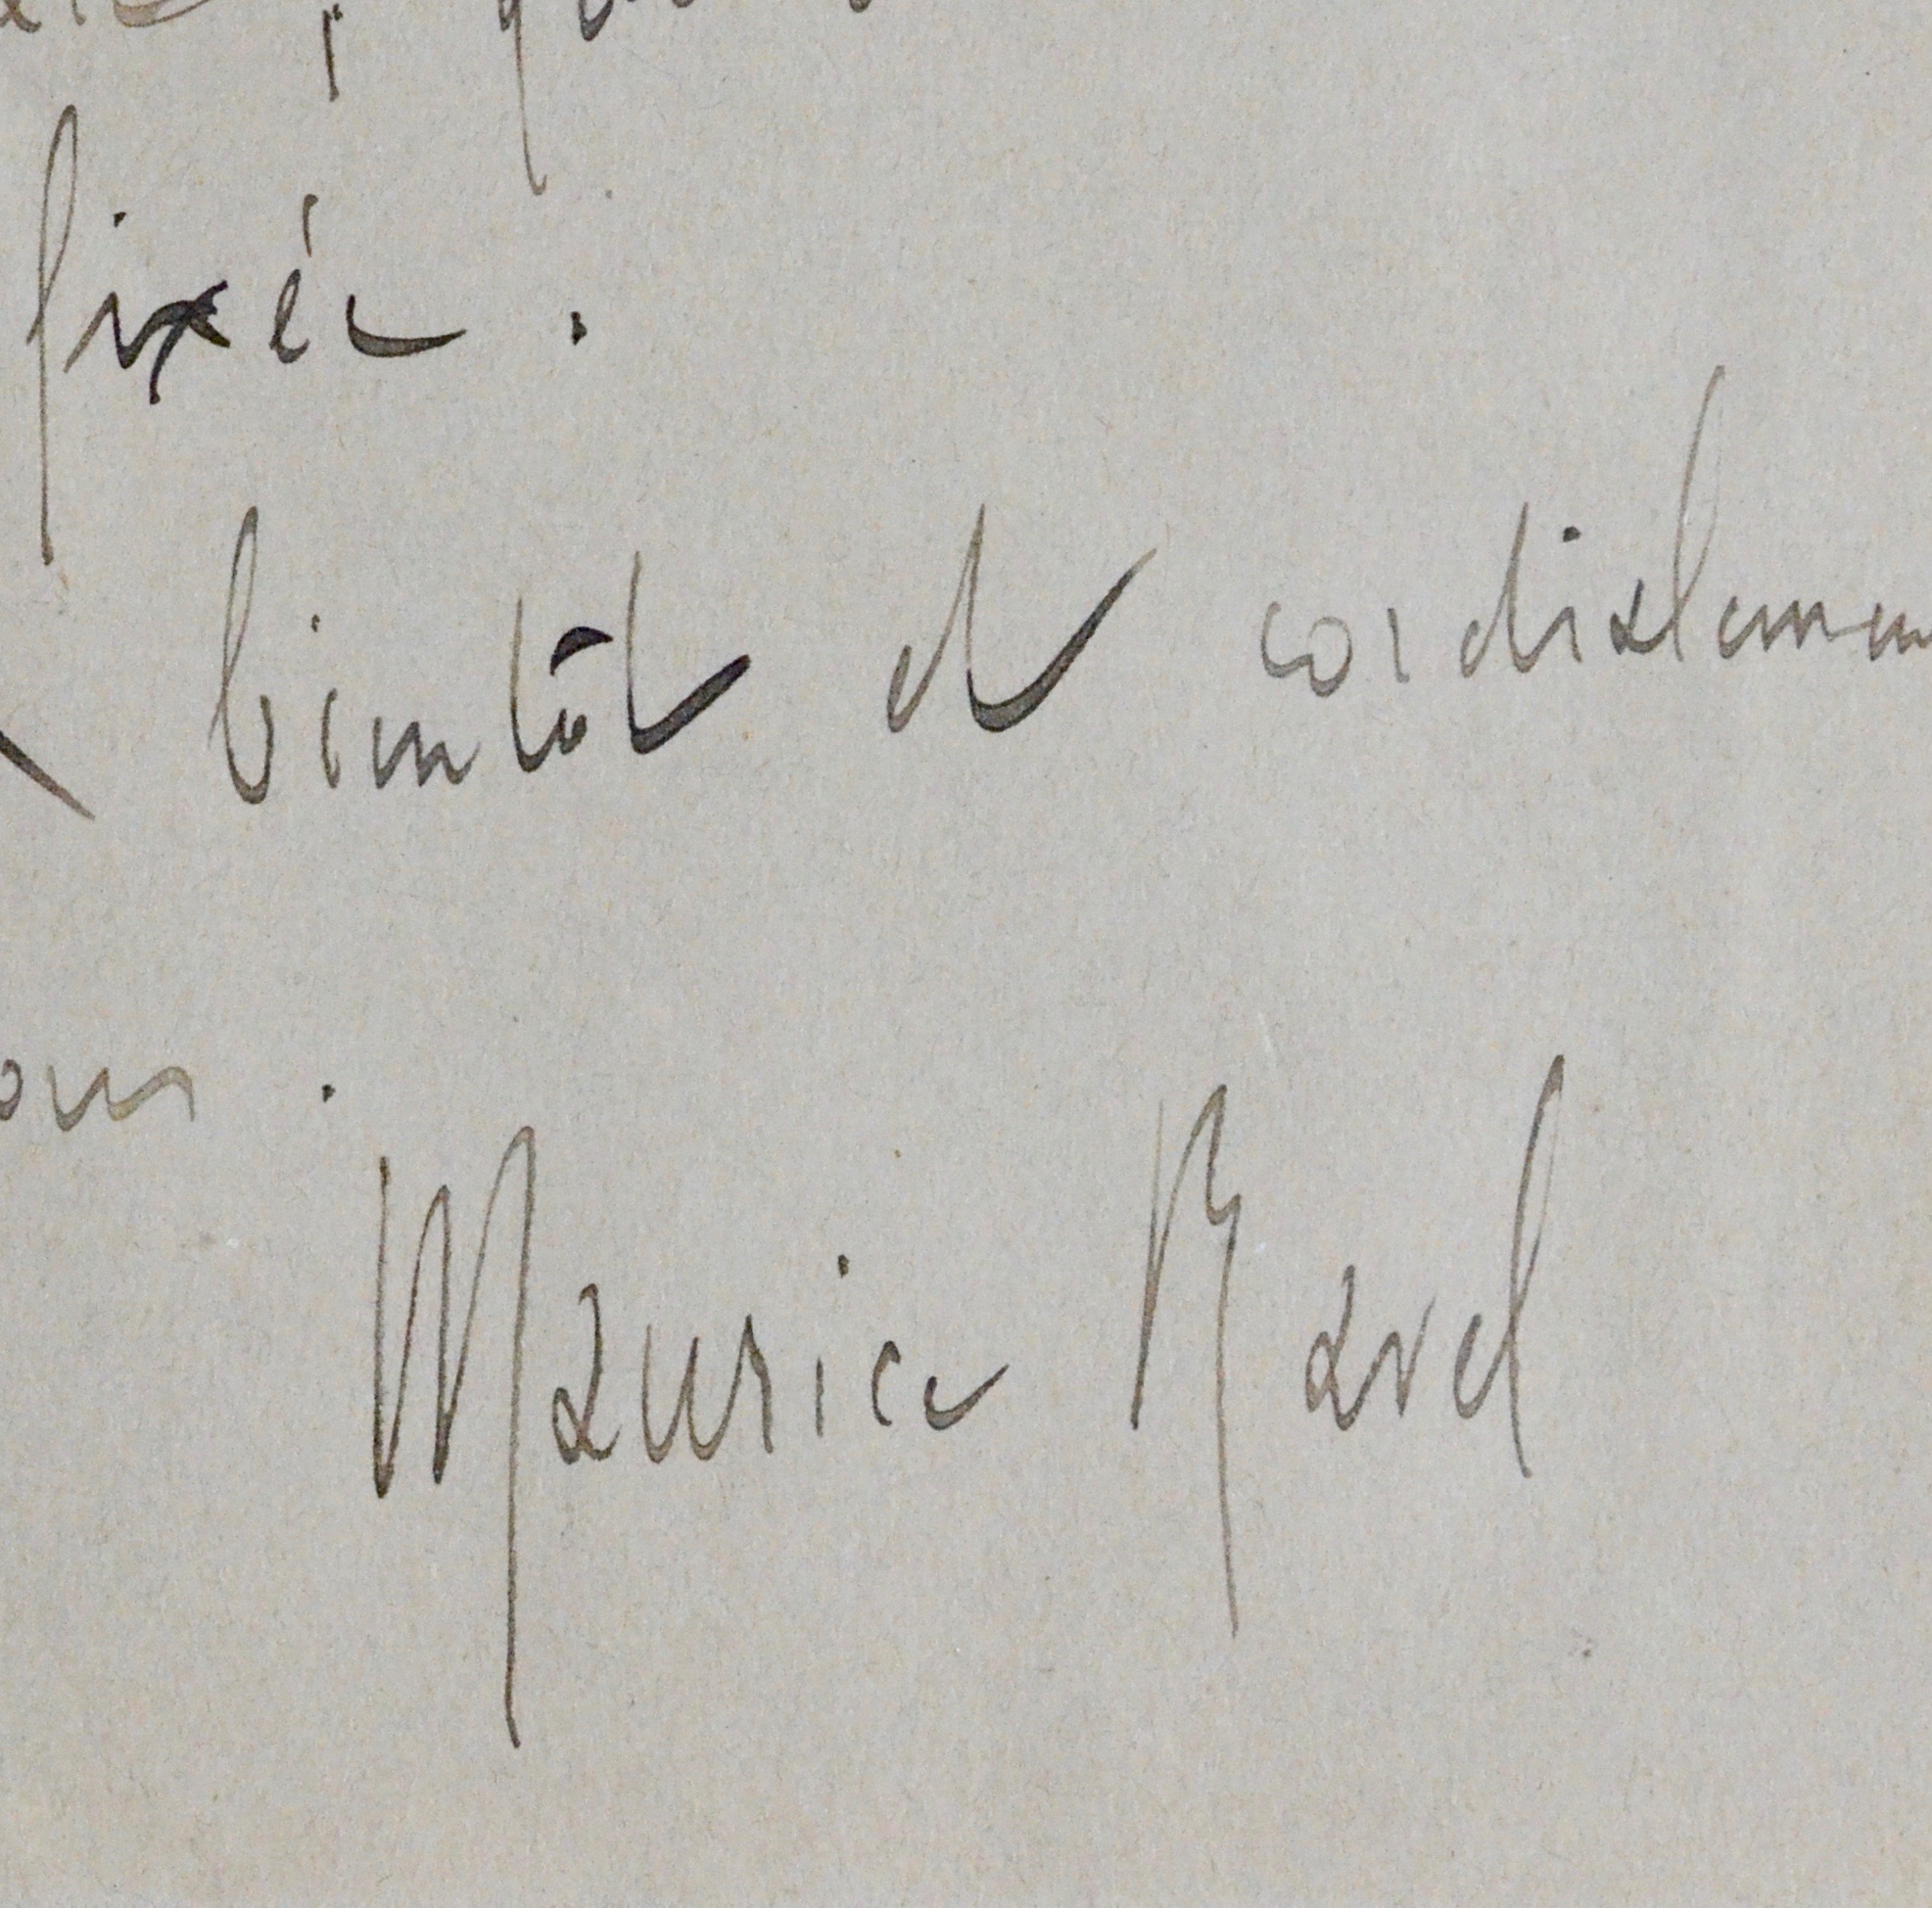 fixée.
bientôt et cordialemen
Maurice Ravel